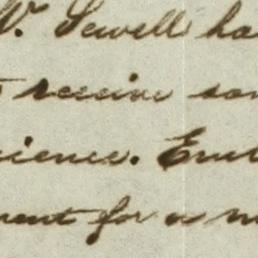 W. Sewell ha
receive som
cience. Eml
ment for a m